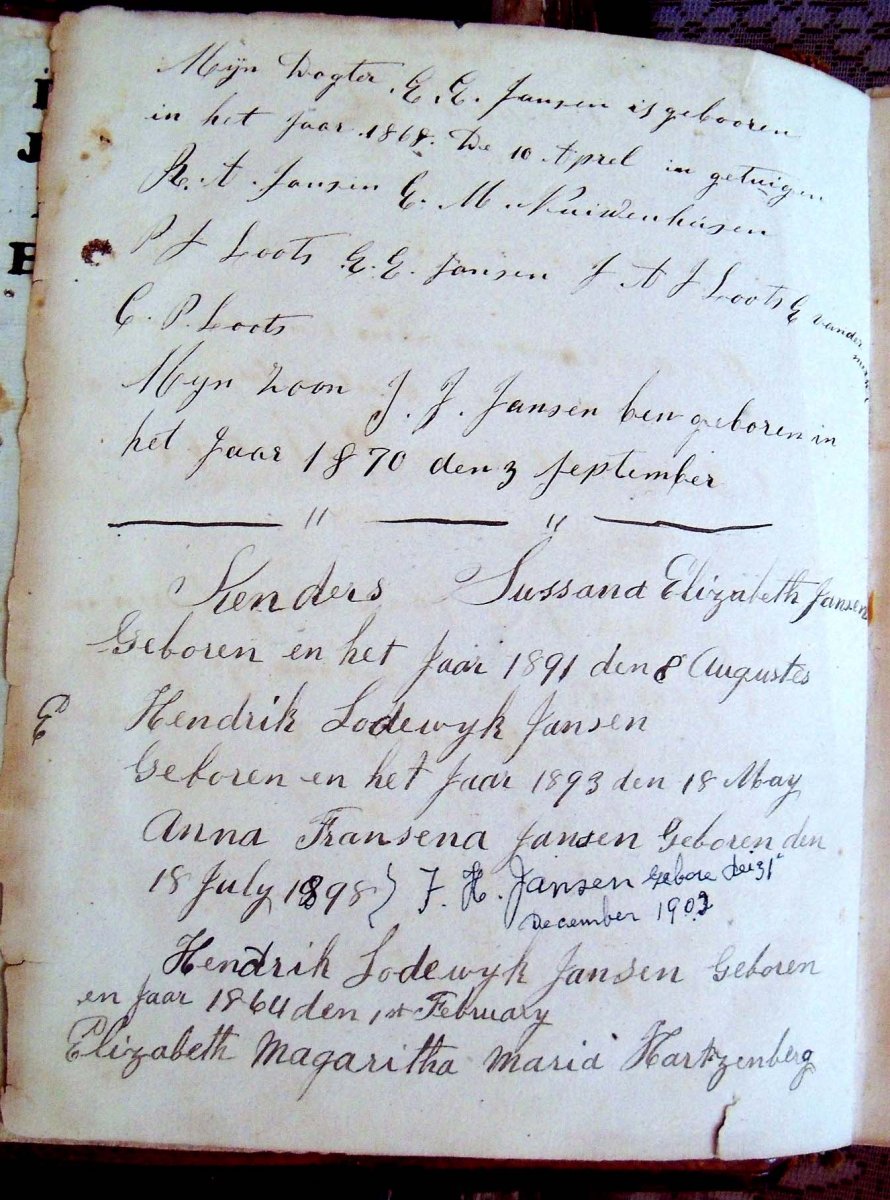 Mijn Dogter E. E. Jansen is gebooren
in het Jaar 1868. De 10 Aprel in getuigen
R. A. Jansen E. M. Nuiwenhusen
P J Loots E. E. Jansen J A J Loots E vander
merwe
C. P. Loots
Myn zoon J. J. Jansen ben geboren in
het Jaar 1870 den 3 September
Kenders Sussana Elizabeth Jansen
Geboren en het Jaar 1891 den 8 Augustes
E Hendrik Lodewyk Jansen
Geboren en het Jaar 1893 den 18 May
Anna Fransena Jansen Geboren den
18 July 1898 } J. H. Jansen Gebore dei 31
December 1902
Hendrik Lodewyk Jansen Geboren
en Jaar 1864 den 1st February
Elizabeth Magaritha Maria Hartzenberg